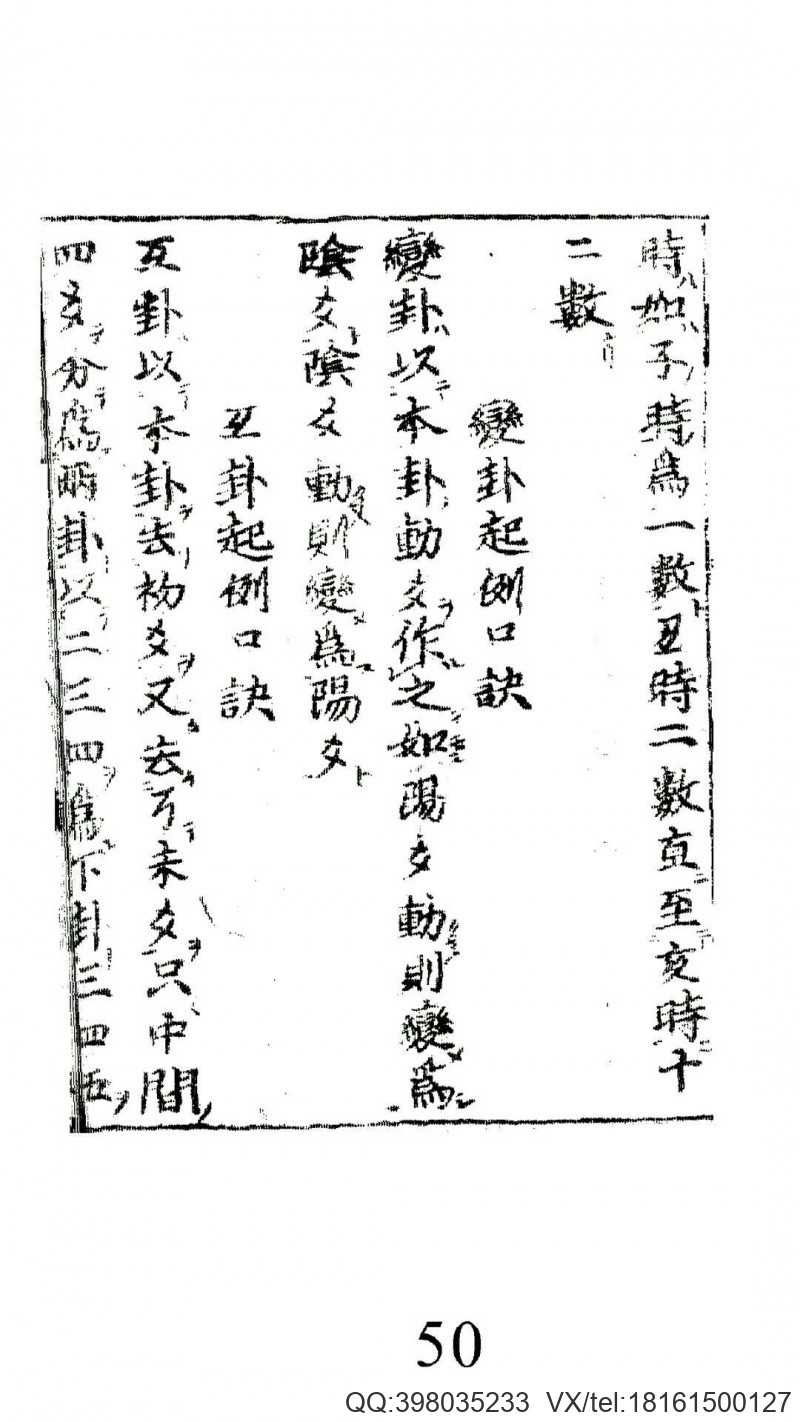 時如子時爲一數丑時二數直至亥時十
二數
變卦起例口訣
變卦以本卦動爻作之如陽爻動則變爲
陰爻陰爻動則變爲陽爻
互卦起例口訣
互卦以本卦去初爻又去了末爻只中間
四爻分爲兩卦以二三四爲下卦三四五
50
QQ:398035233 VX/tel:18161500127